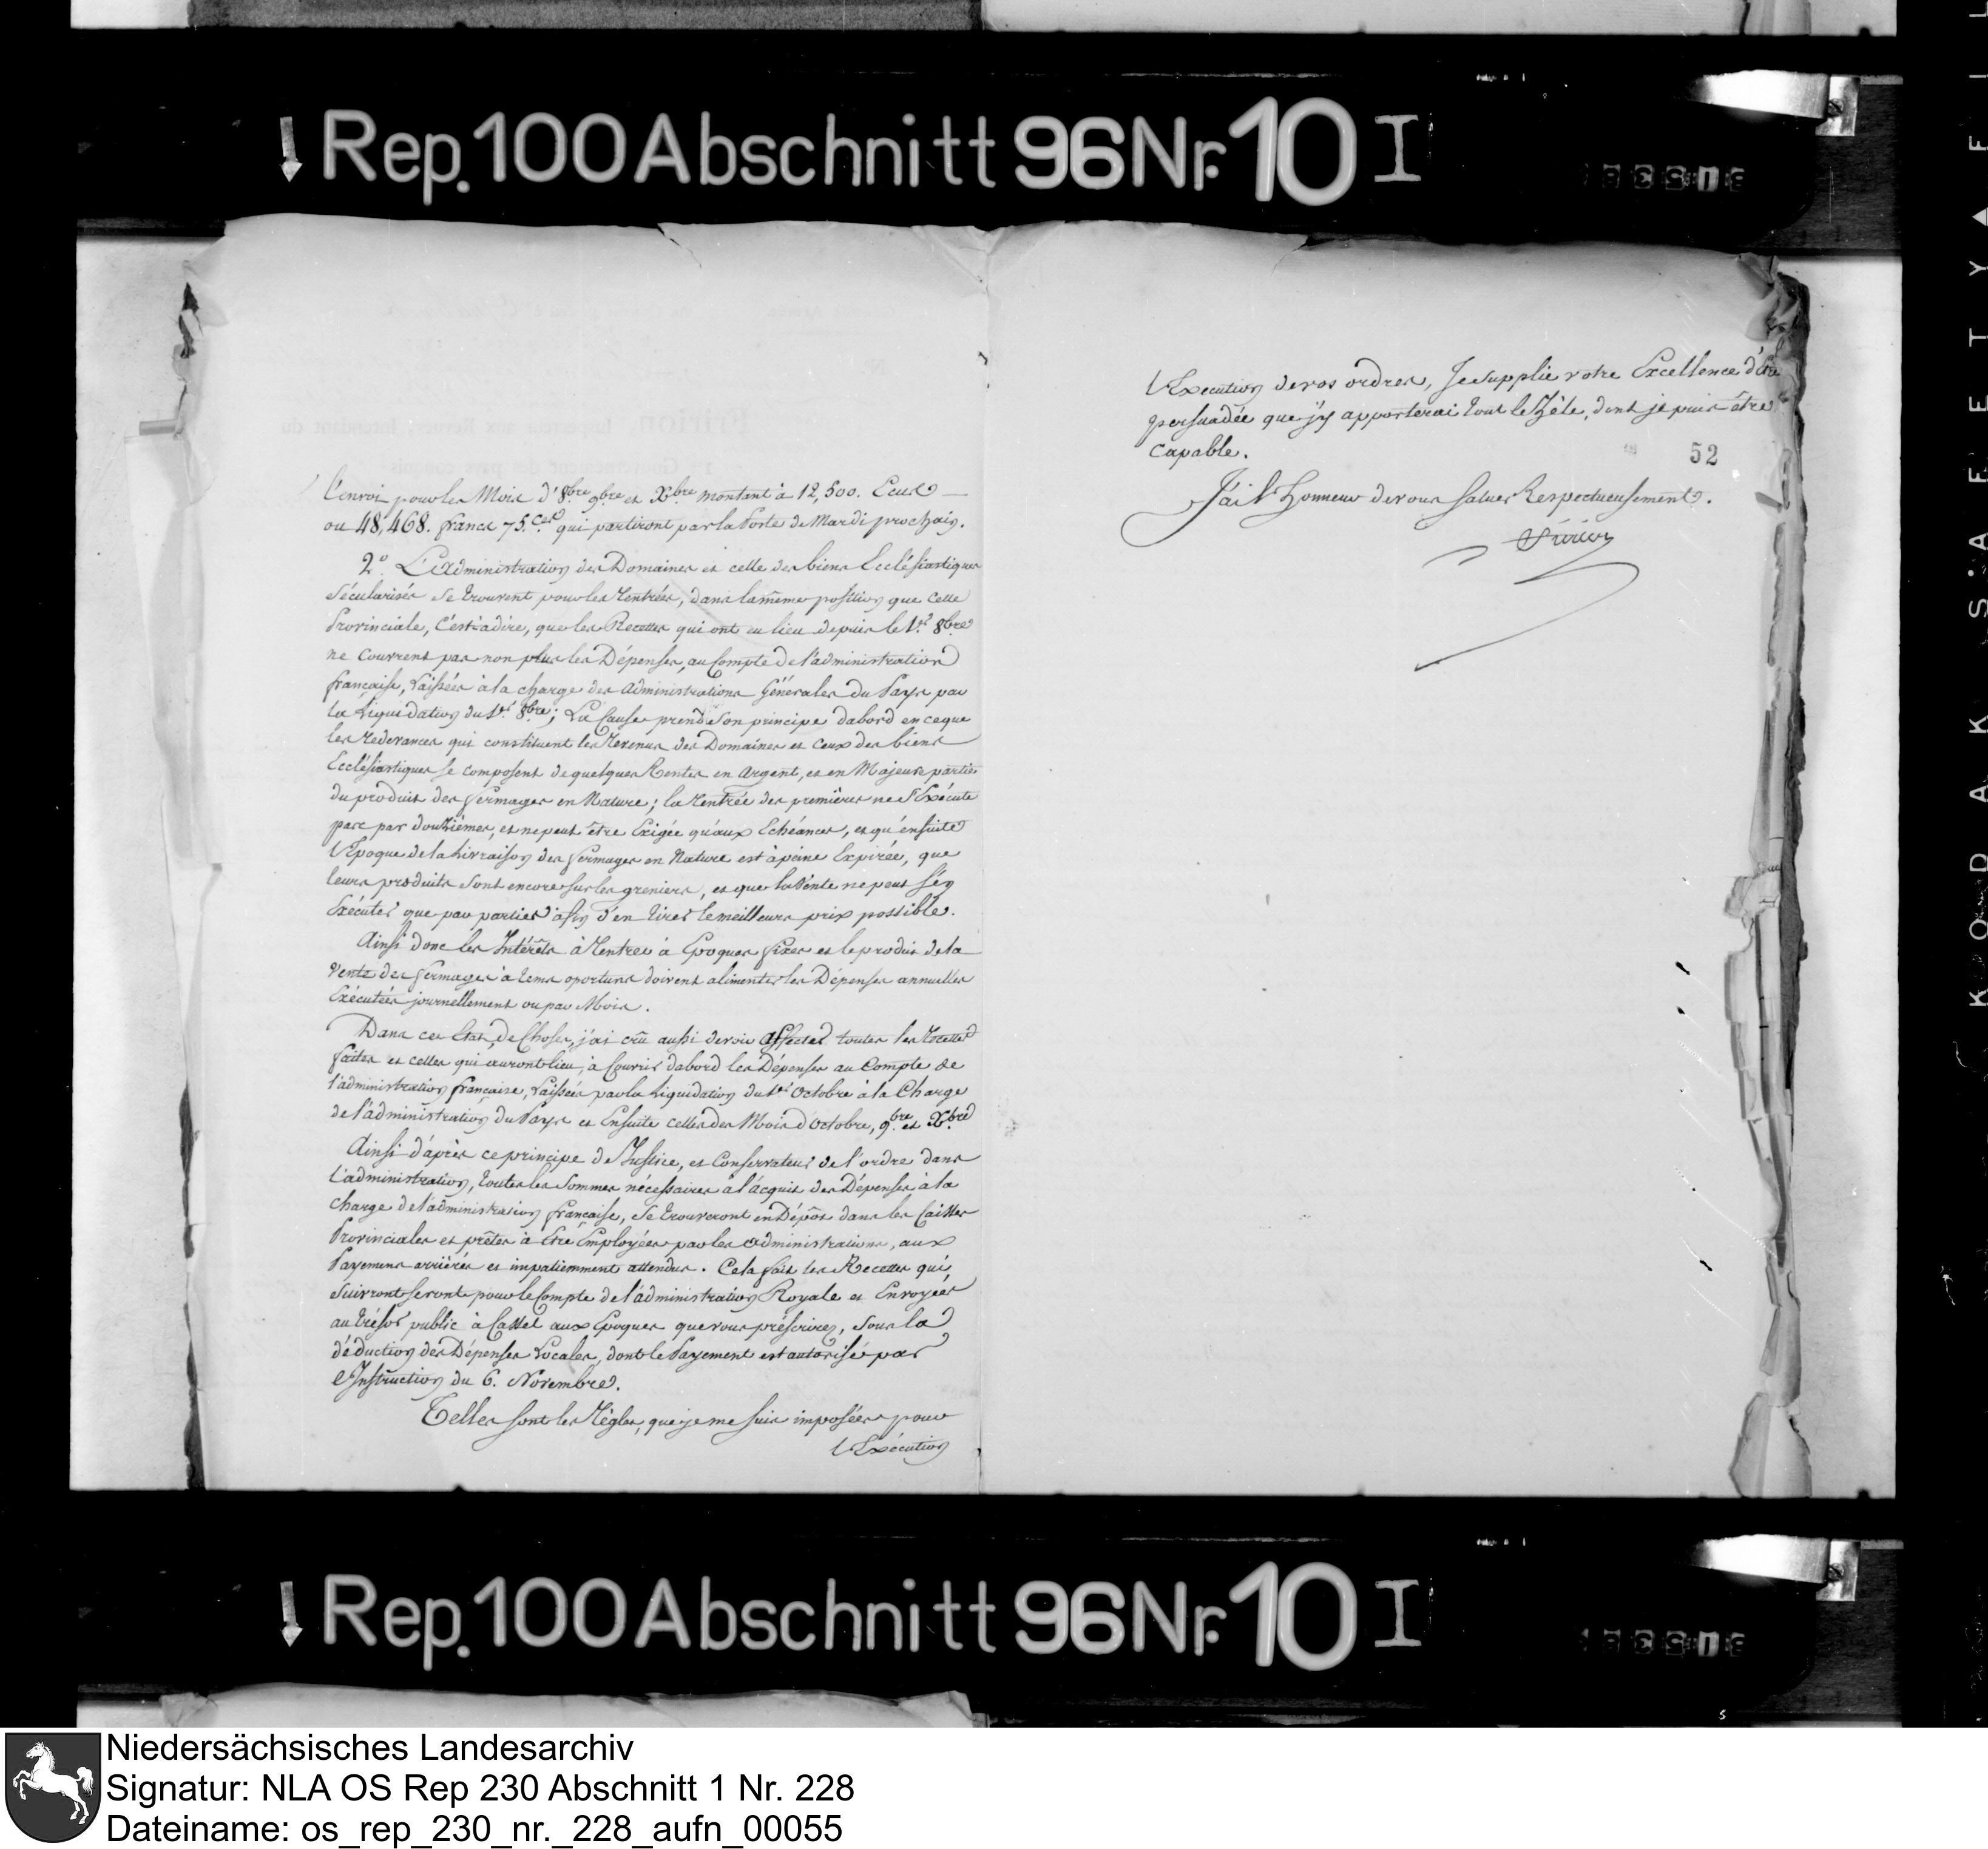 Rep. 100 Abschnitt 96 Nr. 10 I
l'envoi pour les Mois d'8bre 9bre et Xbre montant à 12,500. Ecus
ou 48,468. francs 75. Ces qui partiront par la Poste de Mardi prochain.
2º. L'Administration des Domaines et celle des biens Ecclésiastiques
Sécularisés se trouvent pour les Rentrées, dans la même position que celle
Provinciale, C'est-adire, que les Recettes qui ont eu lieu depuis le 1er. 8bre
ne couvrent pas non plus les Dépenses, au Compte de l'administration
française, laissées à la charge des Administrations Générales du Pays par
la Liquidation du 1er. 8bre; La Cause prend son principe dabord en ceque
les Redevances qui constituent les Revenus des Domaines et ceux des biens
Ecclésiastiques se composent de quelques Rentes en Argent, et en Majeure partie
du produit des fermages en Nature; la Rentrée des premières ne S'Exécute
pas par douzièmes, et ne peut être Exigée qu'aux Echéances, et qu'ensuite
l'Epoque de la Livraison des fermages en Nature est à peine Expirée, que
leurs produits sont encore sur les greniers, et que la Vente ne peut s'en
Exécuter que par parties afin d'en tirer le meilleurs prix possible.
Ainsi donc les Intérêts à Rentrer à Epoques fixes et le produit de la
Vente des fermages à tems oportuns doivent alimenter les Dépenses annuelles
Exécutées journellement ou par Mois.
Dans cet Etat de Choses, j'ai crû aussi devoir affecter toutes les Recettes
faites et celles qui auront lieu, à Couvrir dabord les Dépenses au Compte de
l'administration française, laissées par la Liquidation du 1er Octobre à la Charge
de l'administration du Pays et Ensuite celles des Mois d'Octobre, 9.bre et Xbre
Ainsi d'après ce principe de Justice, et Conservateur de l'ordre dans
l'administration, toutes les Sommes nécessaires à l'acquit des Dépenses à la
charge de l'administration française, se trouveront en Dépôt dans les Caisses
Provinciales et prêtes à Etre Employées par les administrations, aux
Payemens arriérés et impatiemment attendus. Cela fait les Recettes qui
suivront seront pour le Compte de l'administration Royale et Envoyées
au trésor public à Cassel aux Epoques que vous préscrirez, Sous la
déduction des Dépenses Locales, dont le Payement est autorisé par
l'Instruction du 6. Novembre.
Telles sont les Règles, que je me suis imposées pour
l'Exécution
l'Exécution de vos ordres, Je supplie votre Excellence d'être
persuadée que j'y apporterai tout le Zèle, dont je puis être
capable.
52
J'ai l'honneur de vous saluer Respectueusement.
Pririon
Rep. 100 Abschnitt 96 Nr. 10 I
KODAK SAFETY
Niedersächsisches Landesarchiv
Signatur: NLA OS Rep 230 Abschnitt 1 Nr. 228
Dateiname: os_rep_230_nr._228_aufn_00055